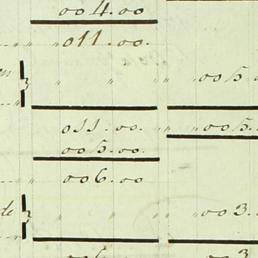 004.00
011.00.
005.
011.00. 005.
005.00
006.00
de 003.